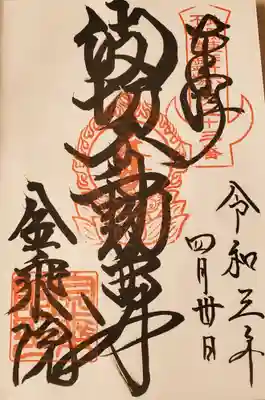 奉拝
波切不動尊
金乗院
令和三年
四月卅日